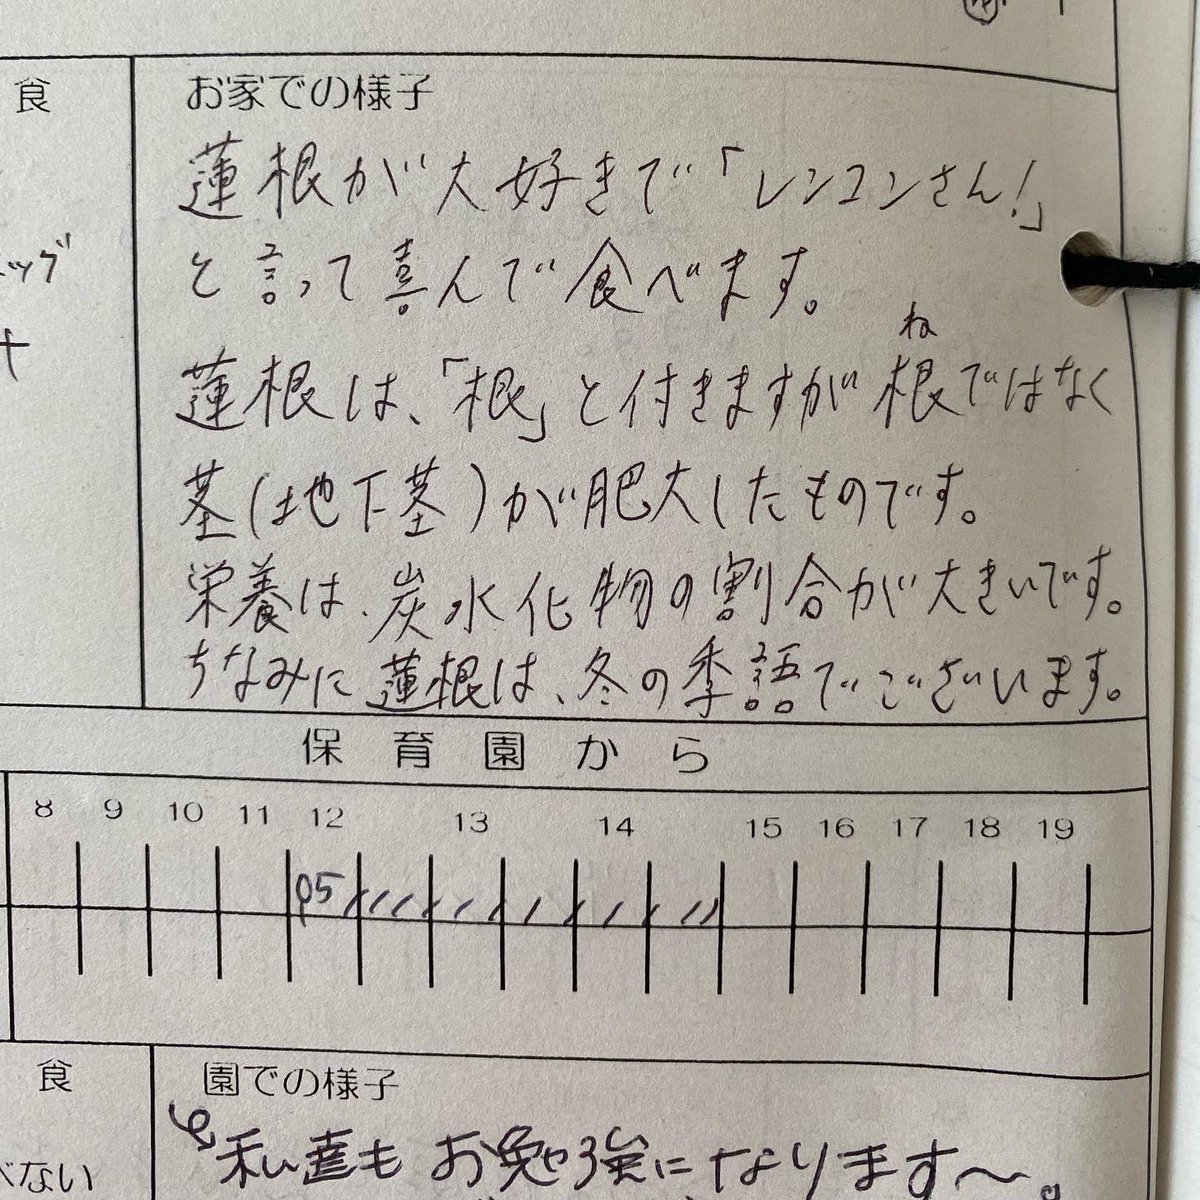 食
お家での様子
蓮根が大好きで「レンコンさん!」
と言って喜んで食べます。
ッグ
ね
蓮根は、「根」と付きますが根ではなく
茎(地下茎)が肥大したものです。
栄養は、炭水化物の割合が大きいです。
ちなみに蓮根は、冬の季語でございます。
保育園から
8 9 10 11 12 13 14 15 16 17 18 19
05
食
園での様子
私達もお勉強になります〜。
べない